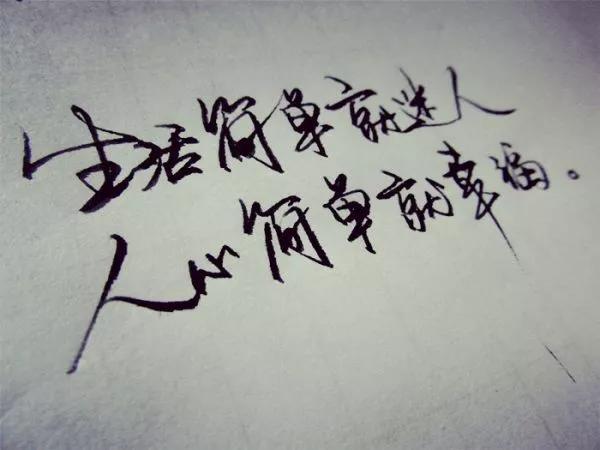 生活简单就迷人
人心简单就幸福。